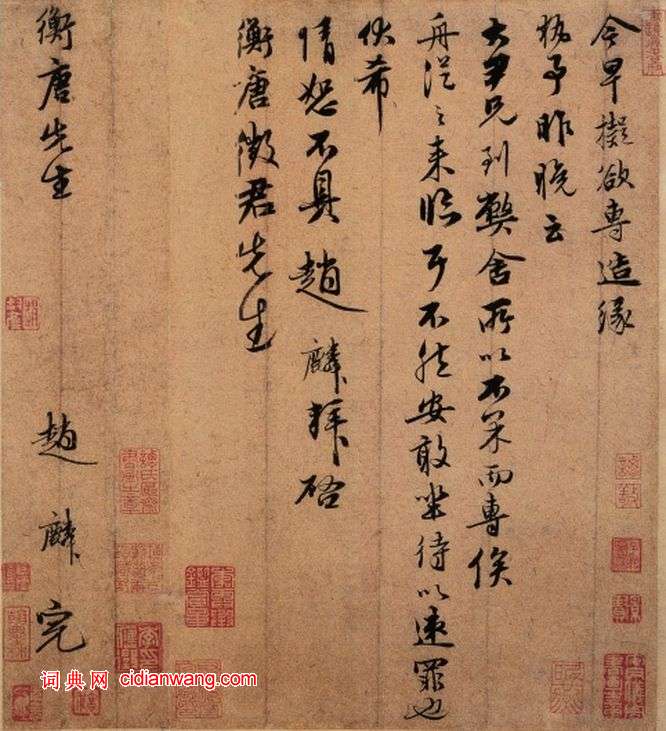 今早擬欲專造緣
執事昨晚云
大尹兄到弊舍所以不果而專俟
舟從之來臨耳不然安敢坐待以速罪也
伏希
情恕不具趙麟拜啓
衡唐徵君先生
衡唐先生 趙麟完
词典网 cidianwang.com